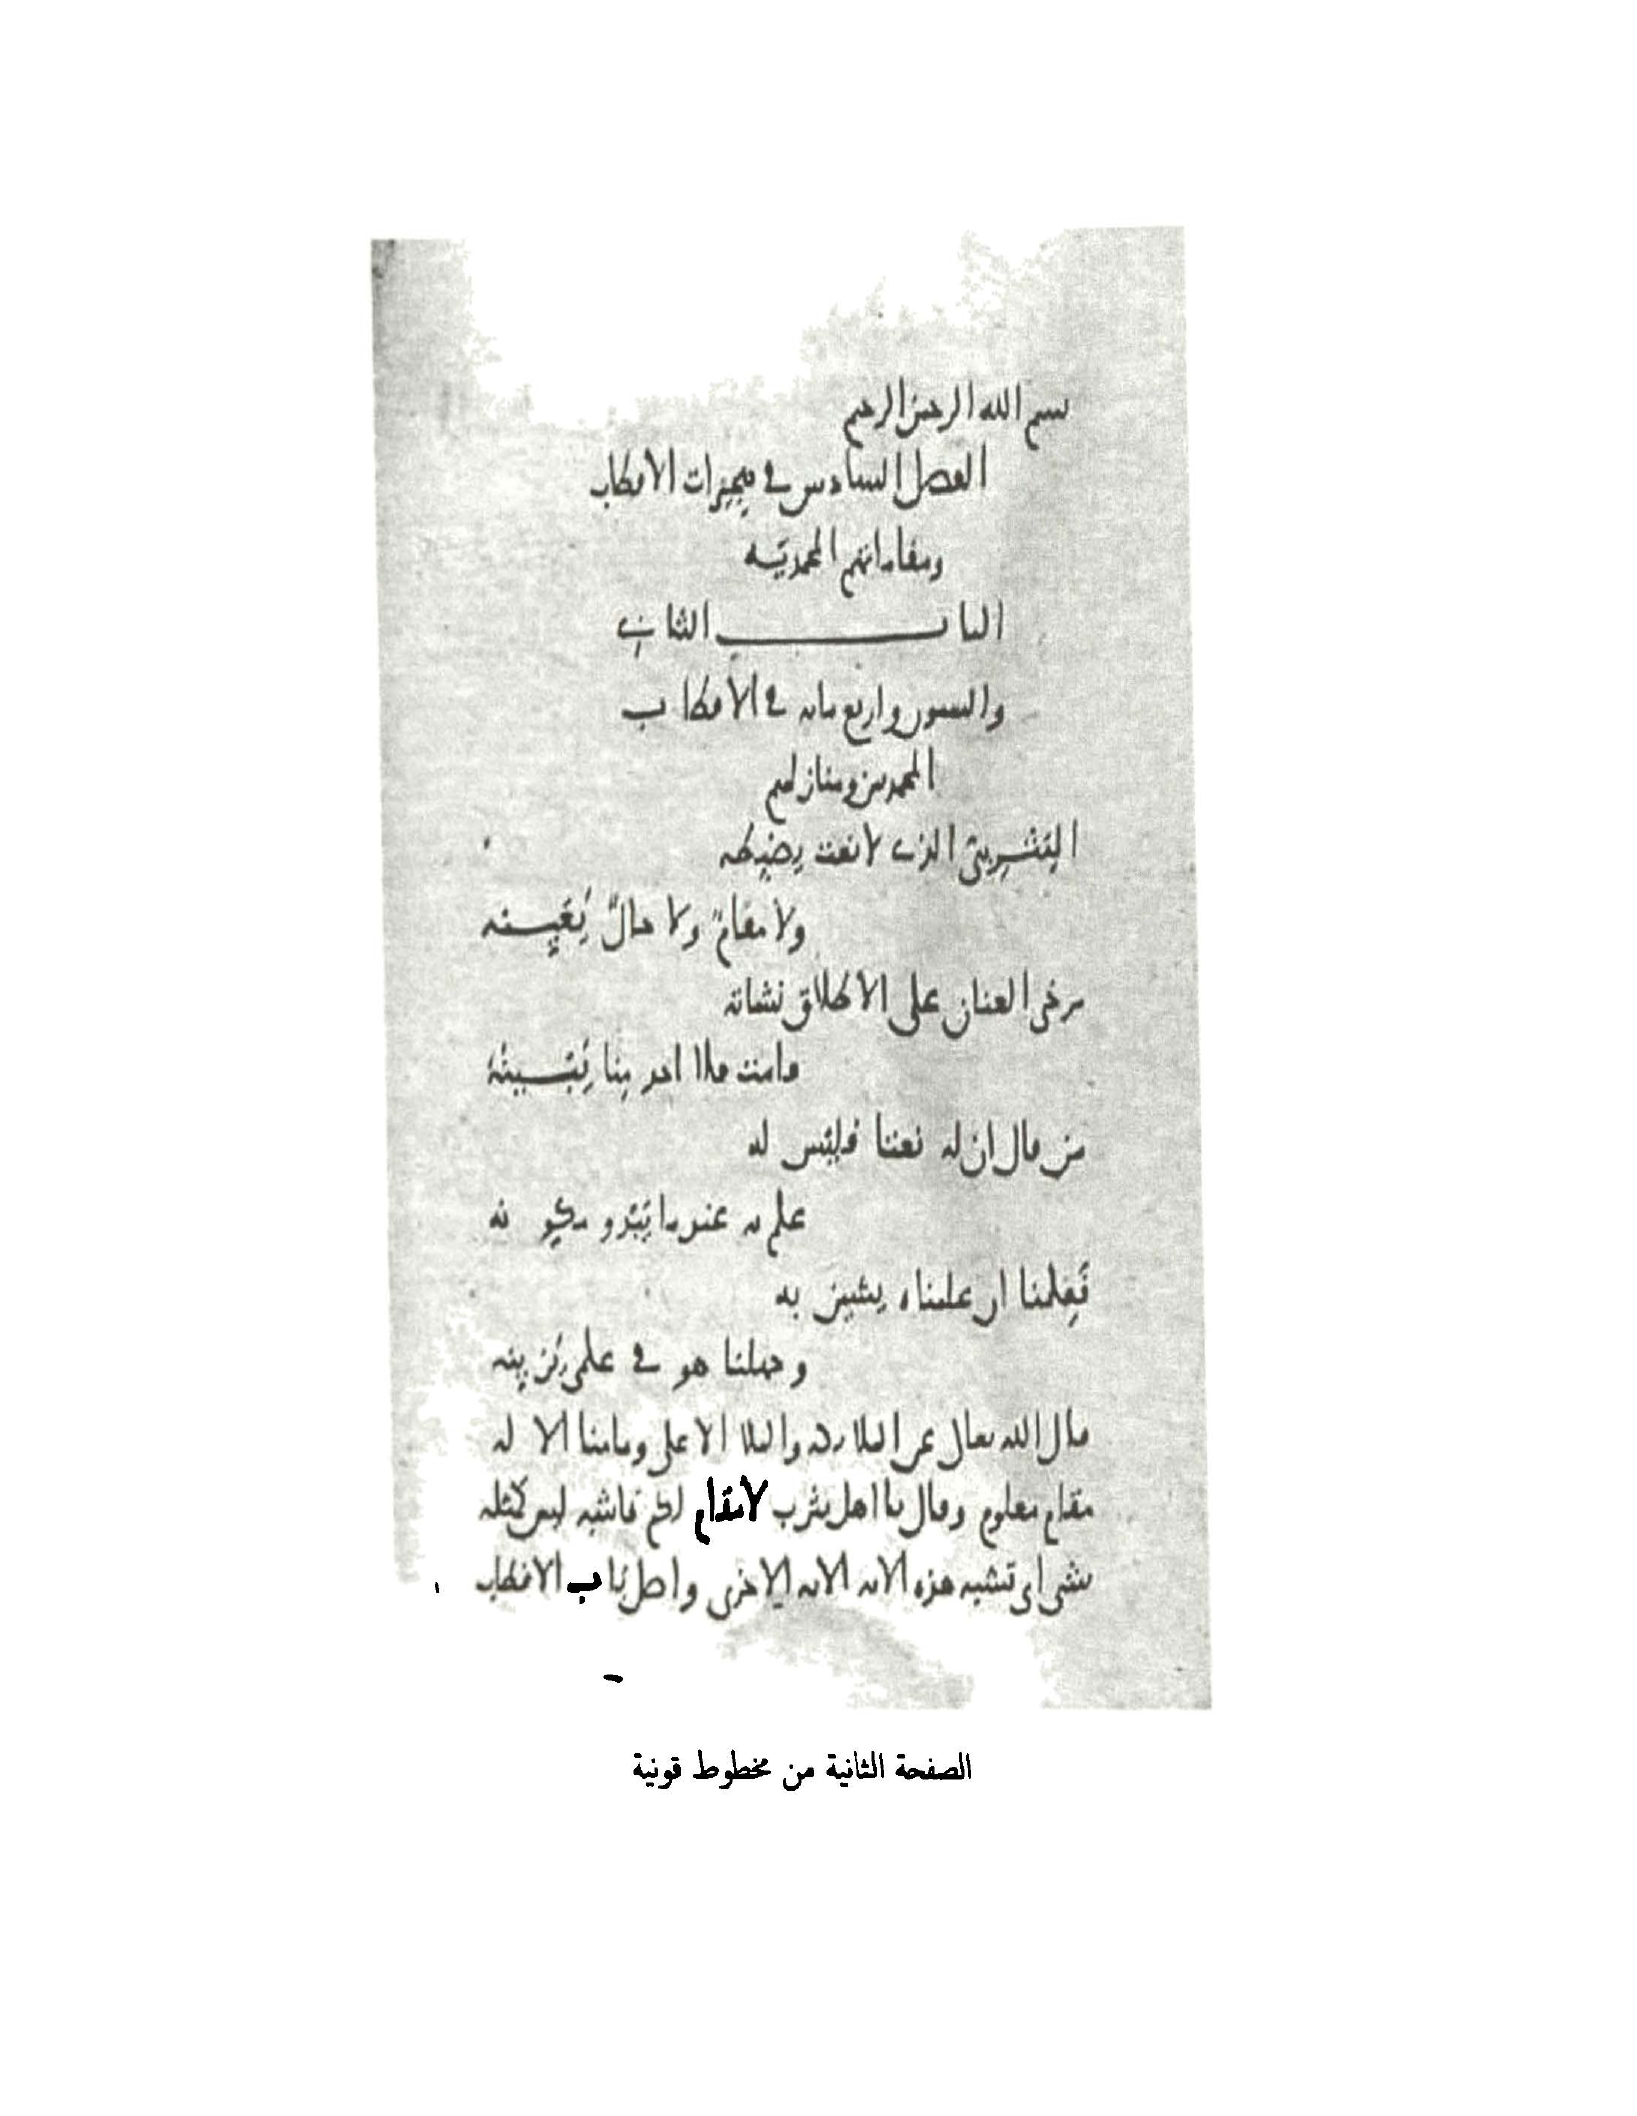 بسم الله الرحمن الرحيم
الفصل السادس في هجيرات الاقطاب
ومقاماتهم المحمدية
الباب الثاني
والستون واربع مائه في الاقطاب
المحمديين ومنازلهم
اليثربي الذي لا نعت يضبطه
ولا مقامٌ ولا حالٌ يُعَيِّنه
مرخى العنان على الاطلاق نشاته
قامت فلا احد منا يُبَيِّنهُ
من قال ان له نعتا فليس له
علم به عند ما يَبْدو مكونه
فَعِلمنا ان علمناه يشين به
وجهلنا هو في علمي يُزينه
قال الله تعالى عن الملائكة والملا الاعلى وما منا الا له
مقام معلوم وقال يا اهل يثرب لا مقام لكم فاشبه ليس كمثله
شي اي تشبه هذه الايه الايه الاخرى واصل باب الاقطاب
الصفحة الثانية من مخطوط قونية